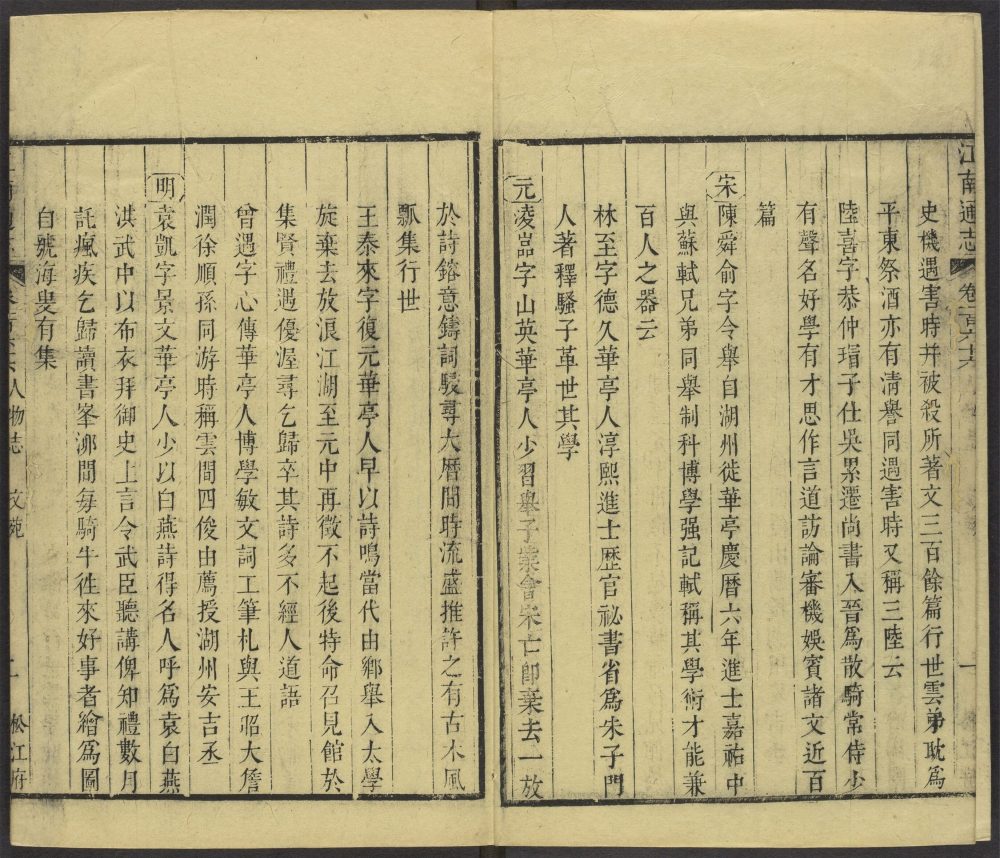 江南通志
卷一百六十六
一
史機遇害時并被殺所著文三百餘篇行世雲弟耽爲
平東祭酒亦有清譽同遇害時又稱三陸云
陸喜字恭仲瑁子仕吳累遷尚書入晉爲散騎常侍少
有聲名好學有才思作言道訪論審機娛賓諸文近百
篇
宋陳舜俞字令舉自湖州徙華亭慶曆六年進士嘉祐中
與蘇軾兄弟同舉制科博學强記軾稱其學術才能兼
百人之器云
林至字德久華亭人淳熙進士歷官祕書省爲朱子門
人著釋騷子革世其學
元凌嵓字山英華亭人少習舉子業會宋亡卽棄去一放
於詩鎔意鑄詞駸尋大曆間時流盛推許之有古木風
瓢集行世
王泰來字復元華亭人早以詩鳴當代由鄉舉入太學
旋棄去放浪江湖至元中再徵不起後特命召見館於
集賢禮遇優渥尋乞歸卒其詩多不經人道語
曾遇字心傳華亭人博學敏文詞工筆札與王昭大詹
潤徐順孫同游時稱雲間四俊由薦授湖州安吉丞
明袁凱字景文華亭人少以白燕詩得名人呼爲袁白燕
洪武中以布衣拜御史上言令武臣聽講俾知禮數月
託瘋疾乞歸讀書峯泖間每騎牛徃來好事者繪爲圖
自號海叟有集
人物志 文苑
松江府